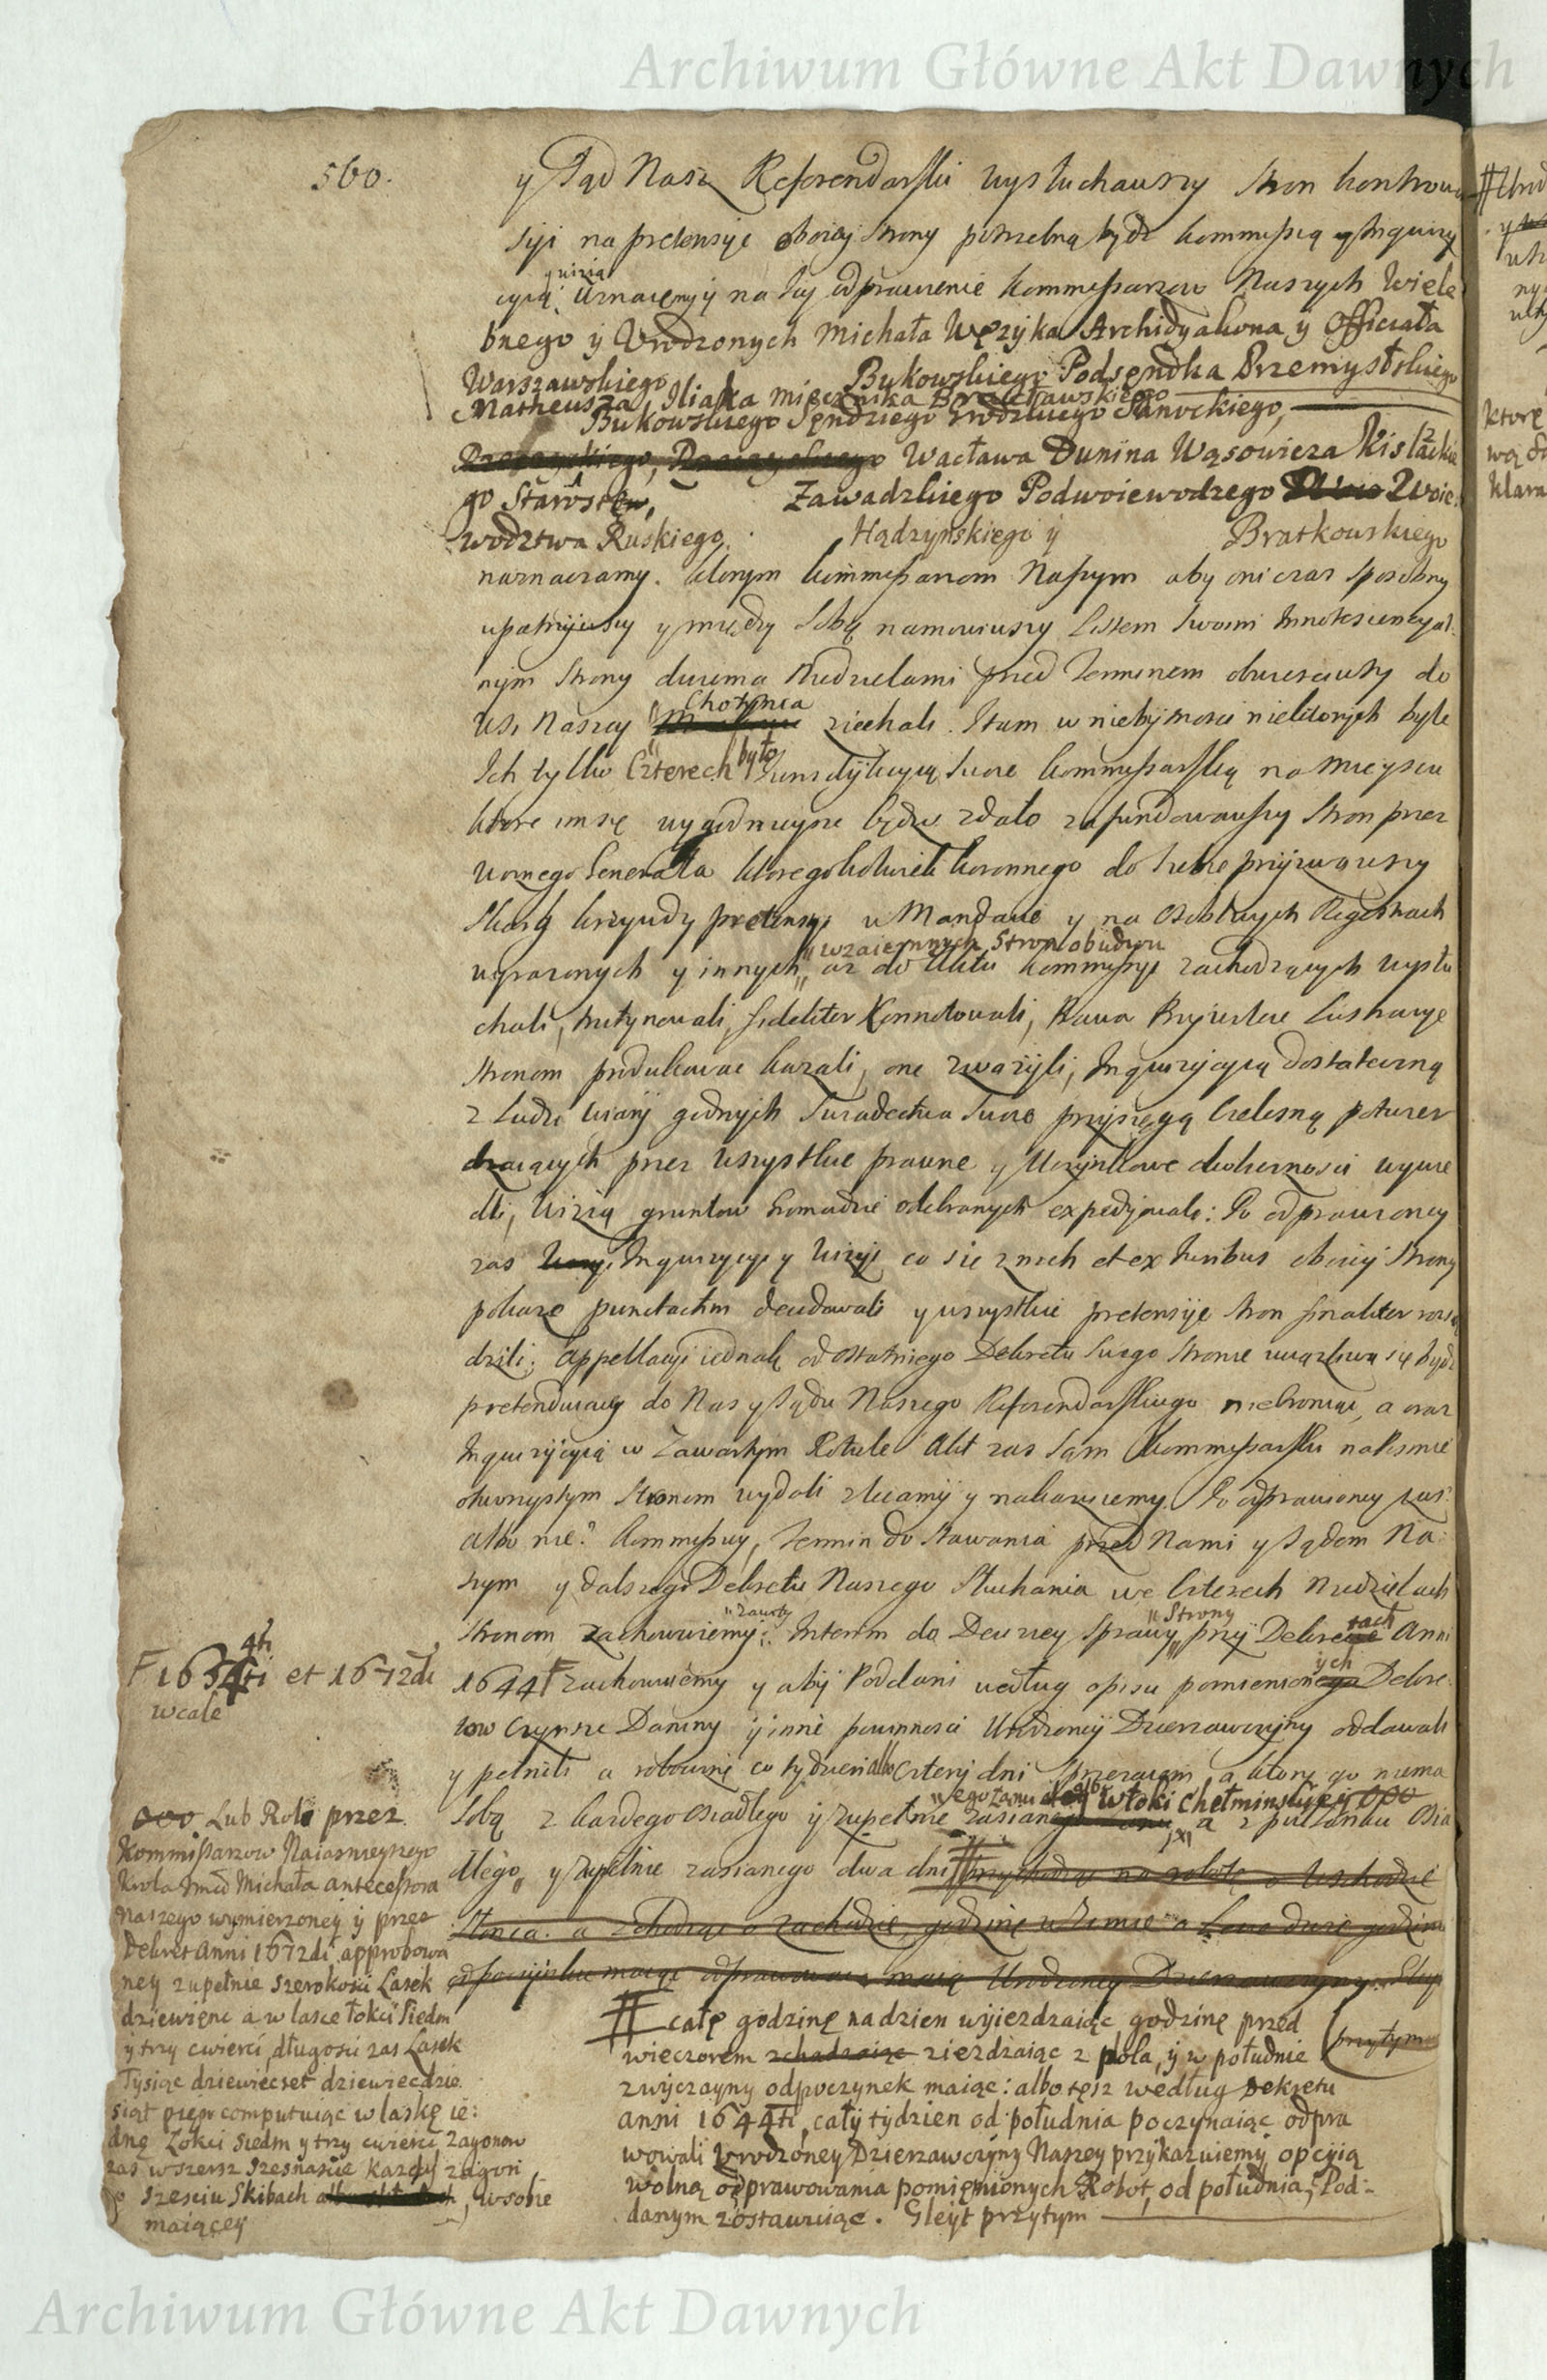 Archiwum Główne Akt Dawnych
560.
y Sąd Nasz Referendarski wysłuchawszy Stron kontrower
syi na pretensye oboiey Strony potrzebną bydz kommissyą y Inquizy
y wizią
cyią Uznaiemy y na tey odprawienie kommissarzow Naszych Wiele
bnego y Urodzonych Michała Wężyka Archidyakona y Officiała
Warszawskiego Bukowskiego Podsendka Przemyslskiego
Matheusza Iliaka Miecznika Bracławskiego
Bukowskiego Sendziego Grodzkiego Sanockiego,
Wacława Dunina Wąsowicza
go Starostę, Zawadzkiego Podwoiewodzego Woie
wodztwa Ruskiego, Hądzynskiego y Bratkowskiego
naznaczamy. ktorym kommissarzom Naszym aby oni czas sposobny
upatrzywszy y między sobą namowiwszy Listem swoim Innotescencyal
nym Strony dwiema Niedzielami przed Terminem obwiesciwszy do
Chotynca
Wsi Naszey ziechali. I tam w niebytnosci niektorych byle
było
Ich tylko Czterech Jurisdykcyą swoie kommissarską na mieyscu
ktore im się wygodnieysze będzie zdało zafundowawszy Stron przez
woznego Generała ktoregokolwiek koronnego do siebie przyzwawszy
Skarg krzywdy pretensyi w Mandacie y na Osobnych Regestrach
y wzaiemnych Stron obudwu
wyrazonych y innych az do Aktu kommissyi zachodzących wysłu
chali, trutynowali, fideliter konnotowali, Prawa Przywileie Lustracye
Stronom produkowac kazali, one zwazyli, Inquizycyią dostateczną
z Ludzi wiary godnych Swiadectwa swoie przysięgą Cielesną potwier
dzaiących przez wszystkie prawne y Uczynkowe okolicznosci wywie
dli, Wizią gruntow Gromadzie odebranych expedyowali: Po odprawioney
zas Inquizycyi y Wizyi co się z nich et ex Juribus oboiey Strony
pokaze punctatim decidowali y wszystkie pretensye Stron finaliter rozsą
dzili; Appellacyi iednak od ostatniego Dekretu swego Stronie uciązliwą się bydz
pretenduiącey do Nas y Sądu Naszego Referendarskiego niebroniąc, a oraz
Inquizycyią w Zawartym Rotule Akt zas Sam kommissarski na Pismie
otworzystym Stronom wydali zlecamy y nakazuiemy. Po odprawioney zas
albo nie? kommissyi, Termin do Stawania przed Nami y Sądem Na
szym y dalszego Dekretu Naszego Słuchania we Czterech Niedzielach
zawity Strony tach
Stronom zachowuiemy. Interim do Decizey Sprawy przy Dekrecie Anni
F 1654ti et 1672di
wcale
ych
1644 F zachowuiemy y aby Poddani według opisu pomienionego Dekre
tow Czynsze Daniny y inne powinnosci Urodzoney Dzierzawczyny oddawali
y pełnili a robociznę co tydzien albo Cztery dni Sprzęzaiem, a ktory go niema
włoki Chełminskiey
Sobą z kazdego osiadłego y zupełnie zasianego a z puł Łanku Osia
dłego y zupełnie zasianego dwa dni przychodząc na robotę o Wschodzie
Słonca. a schodząc o zachodzie, godzinę w Zimie a Lecie dwie godziny
odpoczynku maiąc odprawować maią Urodzoney Dzierzawczyny. Gleyt
000 Lub Roli przez
Kommissarzow Naiasnieyszego
Krola Jmci Michała antecessora
Naszego wymierzoney y przez
Dekret Anni 1672di approbowa
ney zupełnie szerokosci Lasek
dziewięnc a w lasce łokci Siedm
y trzy cwierci, długosci zas Lasek
Tysiąc dziewięcset dziewięcdzie
siąt pięnc computuiąc w laskę ie:
dnę Łokci Siedm y trzy cwierci, zagonow
zas wszersz szesnascie kazdy zagon
o szesciu Skibach, w sobie
maiącey
# całę godzinę na dzien wyiezdzaiąc godzinę przed
wieczorem zchadzaiąc ziezdzaiąc z pola, y w południe (przytym
zwyczayny odpoczynek maiąc: albo tesz według Dekretu
anni 1644ti, cały tydzien od południa poczynaiąc odpra
wowali Urodzoney Dzierzawczyny Naszey przykazuiemy opcyią
wolną odprawowania pomienionych Robot, od południa, Pod-
danym zostawuiąc. Gleyt przytym
Archiwum Główne Akt Dawnych